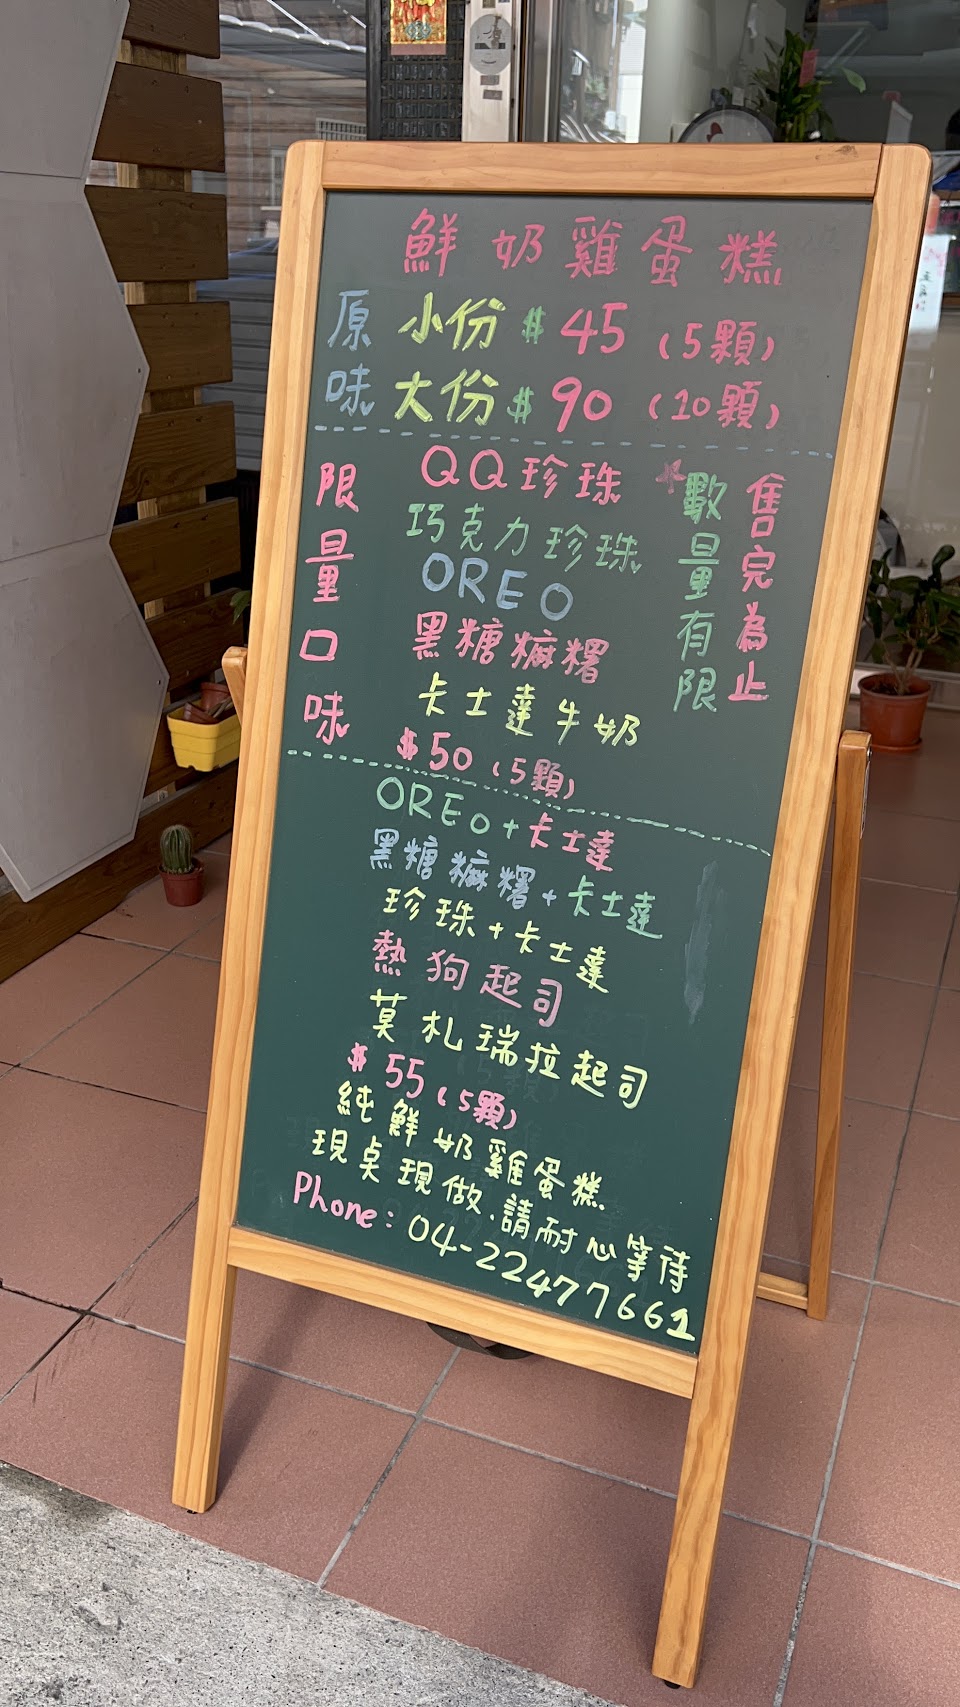 鮮奶雞蛋糕
原味
小份 $45 (5顆)
大份 $90 (10顆)
限量口味
QQ珍珠
巧克力珍珠
OREO
黑糖糜糬
卡士達牛奶
$50 (5顆)
*數量有限
售完為止
OREO+卡士達
黑糖糜糬+卡士達
珍珠+卡士達
熱狗起司
莫札瑞拉起司
$55 (5顆)
純鮮奶雞蛋糕
現桌現做.請耐心等待
Phone: 04-22477661